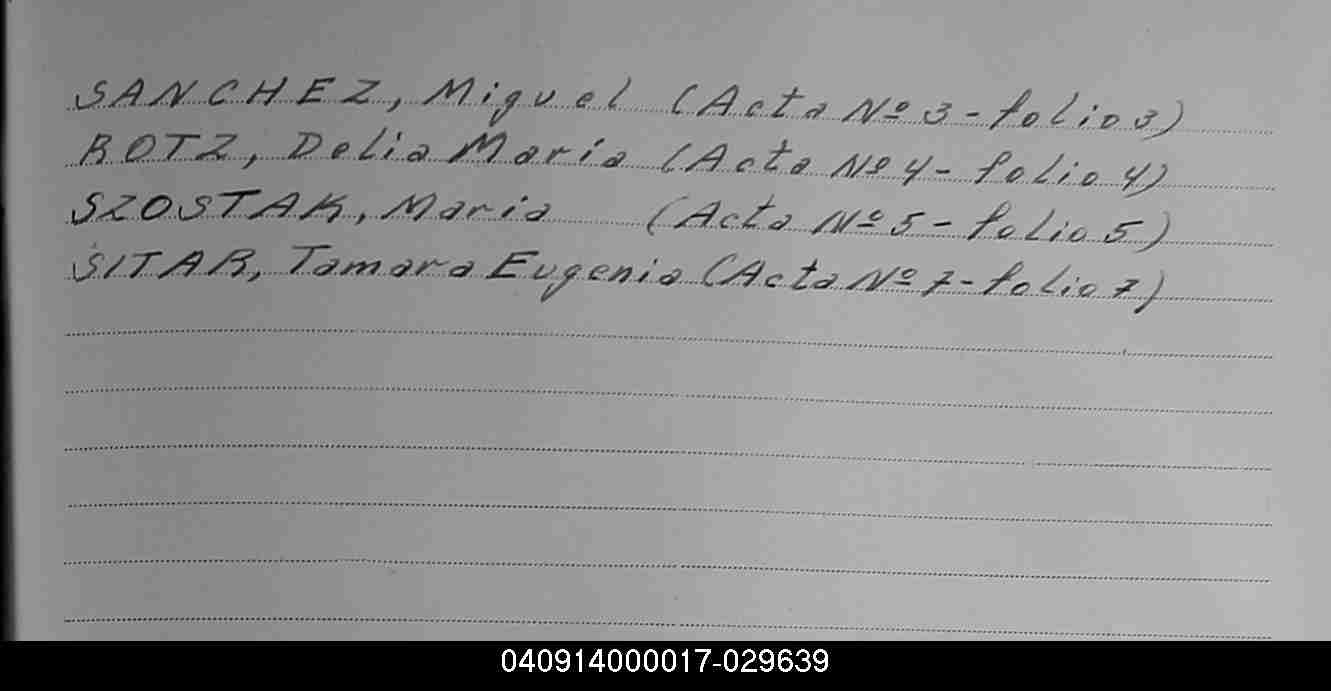 SANCHEZ, Miguel (Acta Nº 3 - folio 3)
ROTZ, Delia Maria (Acta Nº 4 - folio 4)
SZOSTAK, Maria (Acta Nº 5 - folio 5)
SITAR, Tamara Eugenia (Acta Nº 7 - folio 7)
040914000017-029639